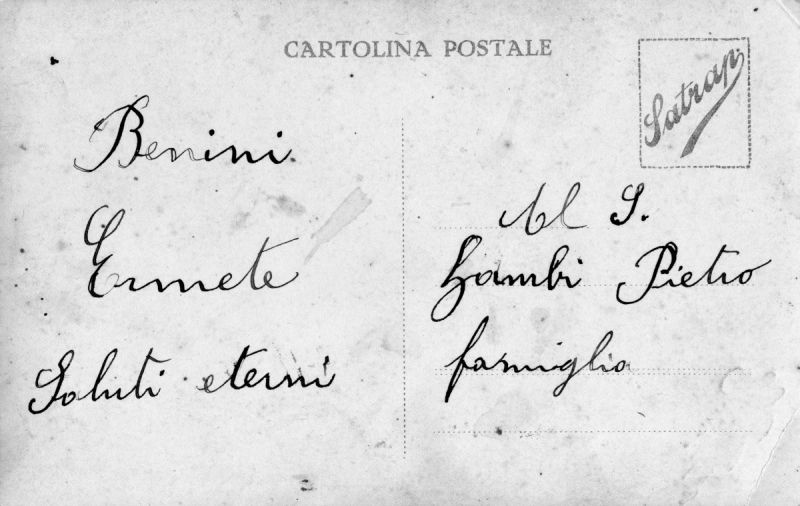 CARTOLINA POSTALE
Satrap
Benini
Ermete
Saluti eterni
Al S.
Zambi Pietro
famiglia